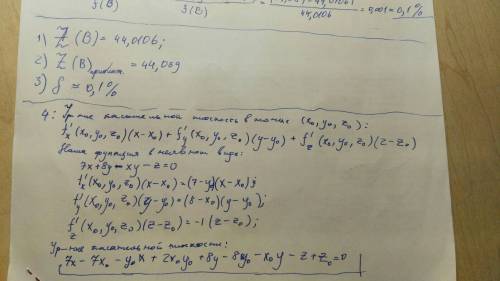 z(B) 44,0106 = 0,001 = 0,1%
1) Z(B) = 44,0106;
2) Z(B) = 44,069
3) δ ≈ 0,1%
4: Ур-ние касательной плоскость в точке (x₀, y₀, z₀):
f'x(x₀, y₀, z₀)(x-x₀) + f'y(x₀, y₀, z₀)(y-y₀) + f'z(x₀, y₀, z₀)(z-z₀)
Наша функция в неявном виде:
7x+8y-xy-z=0
f'x(x₀, y₀, z₀)(x-x₀) = (7-y₀)(x-x₀);
f'y(x₀, y₀, z₀)(y-y₀) = (8-x₀)(y-y₀);
f'z(x₀, y₀, z₀)(z-z₀) = -1(z-z₀);
Ур-ние касательной плоскости:
7x - 7x₀ - y₀x + 2x₀y₀ + 8y - 8y₀ - x₀y - z + z₀ = 0